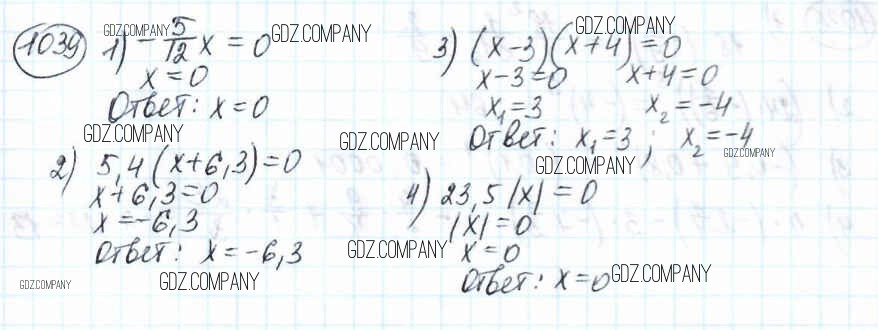 1039 1) -5/12 x = 0
x = 0
Ответ: x = 0
2) 5,4(x+6,3)=0
x+6,3=0
x=-6,3
Ответ: x=-6,3
3) (x-3)(x+4)=0
x-3=0 x+4=0
x₁=3 x₂=-4
Ответ: x₁=3; x₂=-4
4) 23,5|x|=0
|x|=0
x=0
Ответ: x=0
GDZ.COMPANY
GDZ.COMPANY
GDZ.COMPANY
GDZ.COMPANY
GDZ.COMPANY
GDZ.COMPANY
GDZ.COMPANY
GDZ.COMPANY
GDZ.COMPANY
GDZ.COMPANY
GDZ.COMPANY